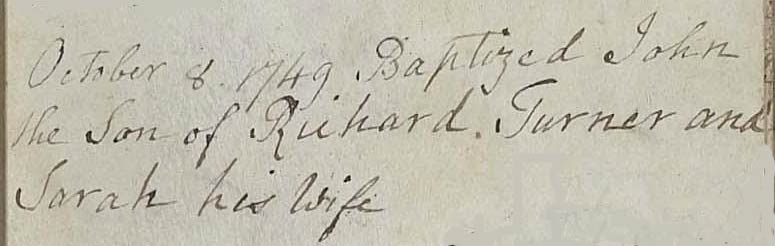 October 8 1749 Baptized John
the Son of Richard. Turner and
Sarah his Wife